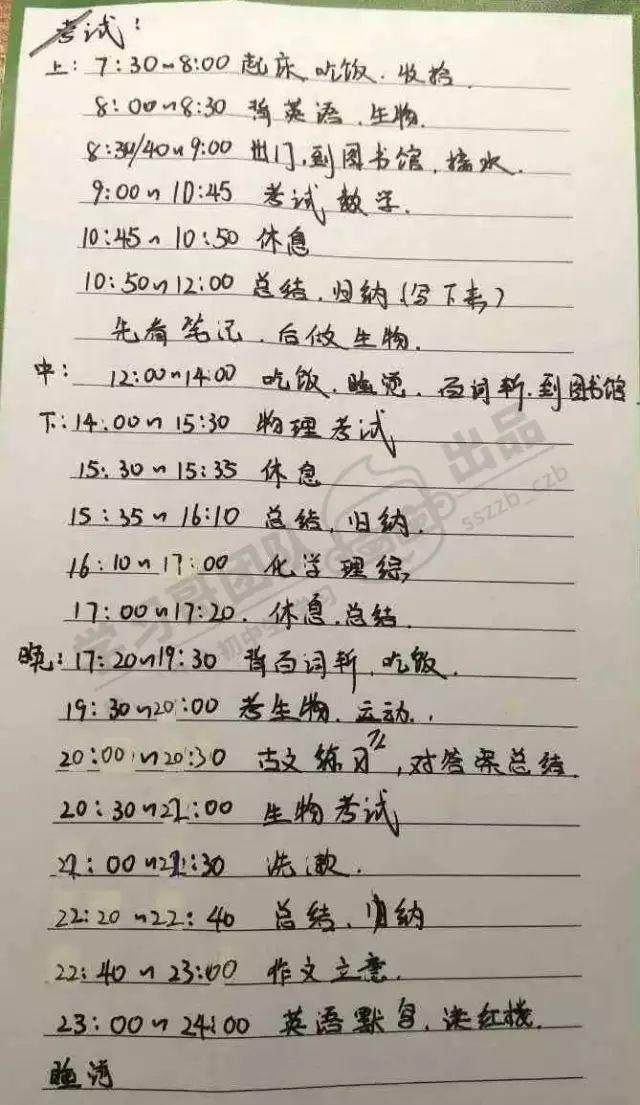 考试:
上: 7:30~8:00 起床 吃饭. 收拾.
8:00~8:30 背英语、生物.
8:30/40~9:00 出门,到图书馆,接水.
9:00~10:45 考试数学.
10:45~10:50 休息
10:50~12:00 总结.归纳(写下来)
先看笔记、后做生物.
中: 12:00~14:00 吃饭、睡觉、百词斩.到图书馆
下: 14:00~15:30 物理考试
15:30~15:35 休息
15:35~16:10 总结,归纳.
16:10~17:00 化学理综,
17:00~17:20. 休息.总结.
晚: 17:20~19:30 背百词斩,吃饭.
19:30~20:00 考生物、运动.
20:00~20:30 古文练习,对答案总结.
20:30~21:00 生物考试
21:00~21:30 洗漱.
22:20~22:40 总结、归纳
22:40~23:00 作文立意.
23:00~24:00 英语默写、读红楼.
睡觉
学习哥团队 出品
初中生学习
sszzb_czb